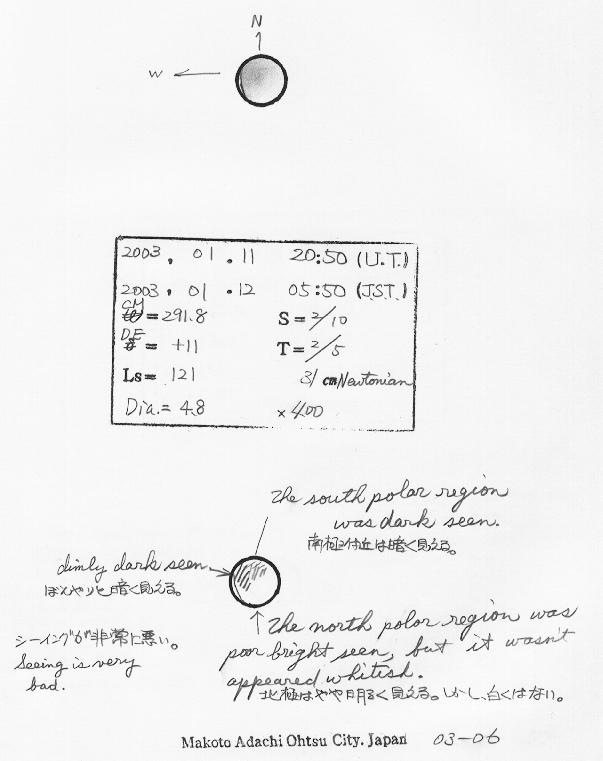 N
W
2003. 01. 11 20:50 (U.T.)
2003. 01. 12 05:50 (J.S.T.)
CM = 291.8 S = 2/10
DE = +11 T = 2/5
Ls = 121 31 cm Newtonian
Dia. = 4.8 × 400
The south polar region
was dark seen.
南極付近は暗く見える。
dimly dark seen
ぼんやりと暗く見える。
The north polar region was
poor bright seen, but it wasn't
appeared whitish.
北極はやや明るく見える。しかし、白くはない。
シーイングが非常に悪い。
Seeing is very
bad.
Makoto Adachi Ohtsu City. Japan 03-06